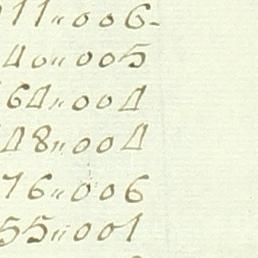 11"006-
40"005
64"004
48"004
76"006
55"001